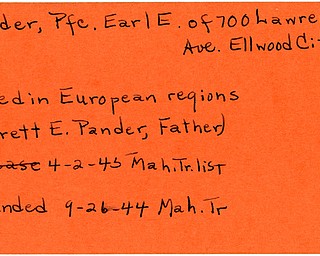 der, Pfc. Earl E. of 700 Lawre
Ave. Ellwood Ci
ed in European regions
rett E. Pander, Father)
ease 4-2-45 Mah. Tr. list
nded 9-26-44 Mah. Tr